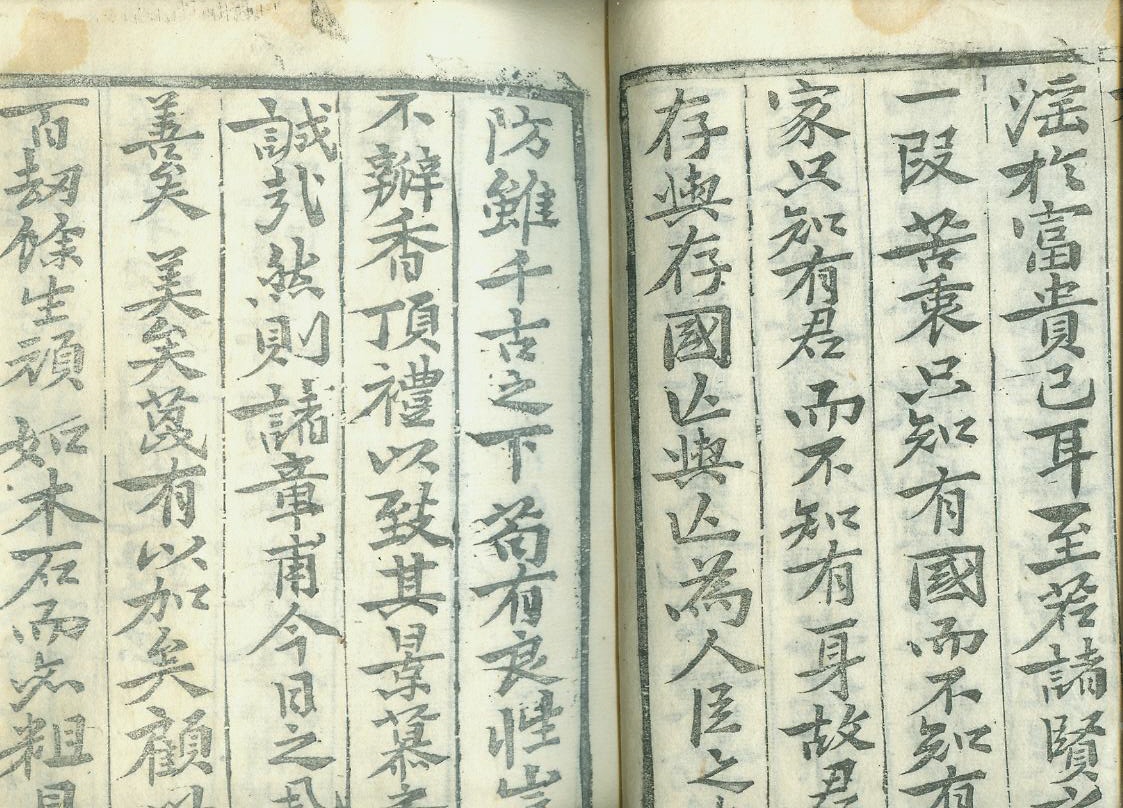 淫於富貴已耳至若諸賢
一段苦衷只知有國而不知有
家只知有君而不知有身故君
存與存國亾與亾為人臣之
防雖千古之下苟有良性
不瓣香頂禮以致其景慕
誠哉然則諸章甫今日之
善矣美矣蔑有以加矣顧
百劫餘生頑如木石而忘粗